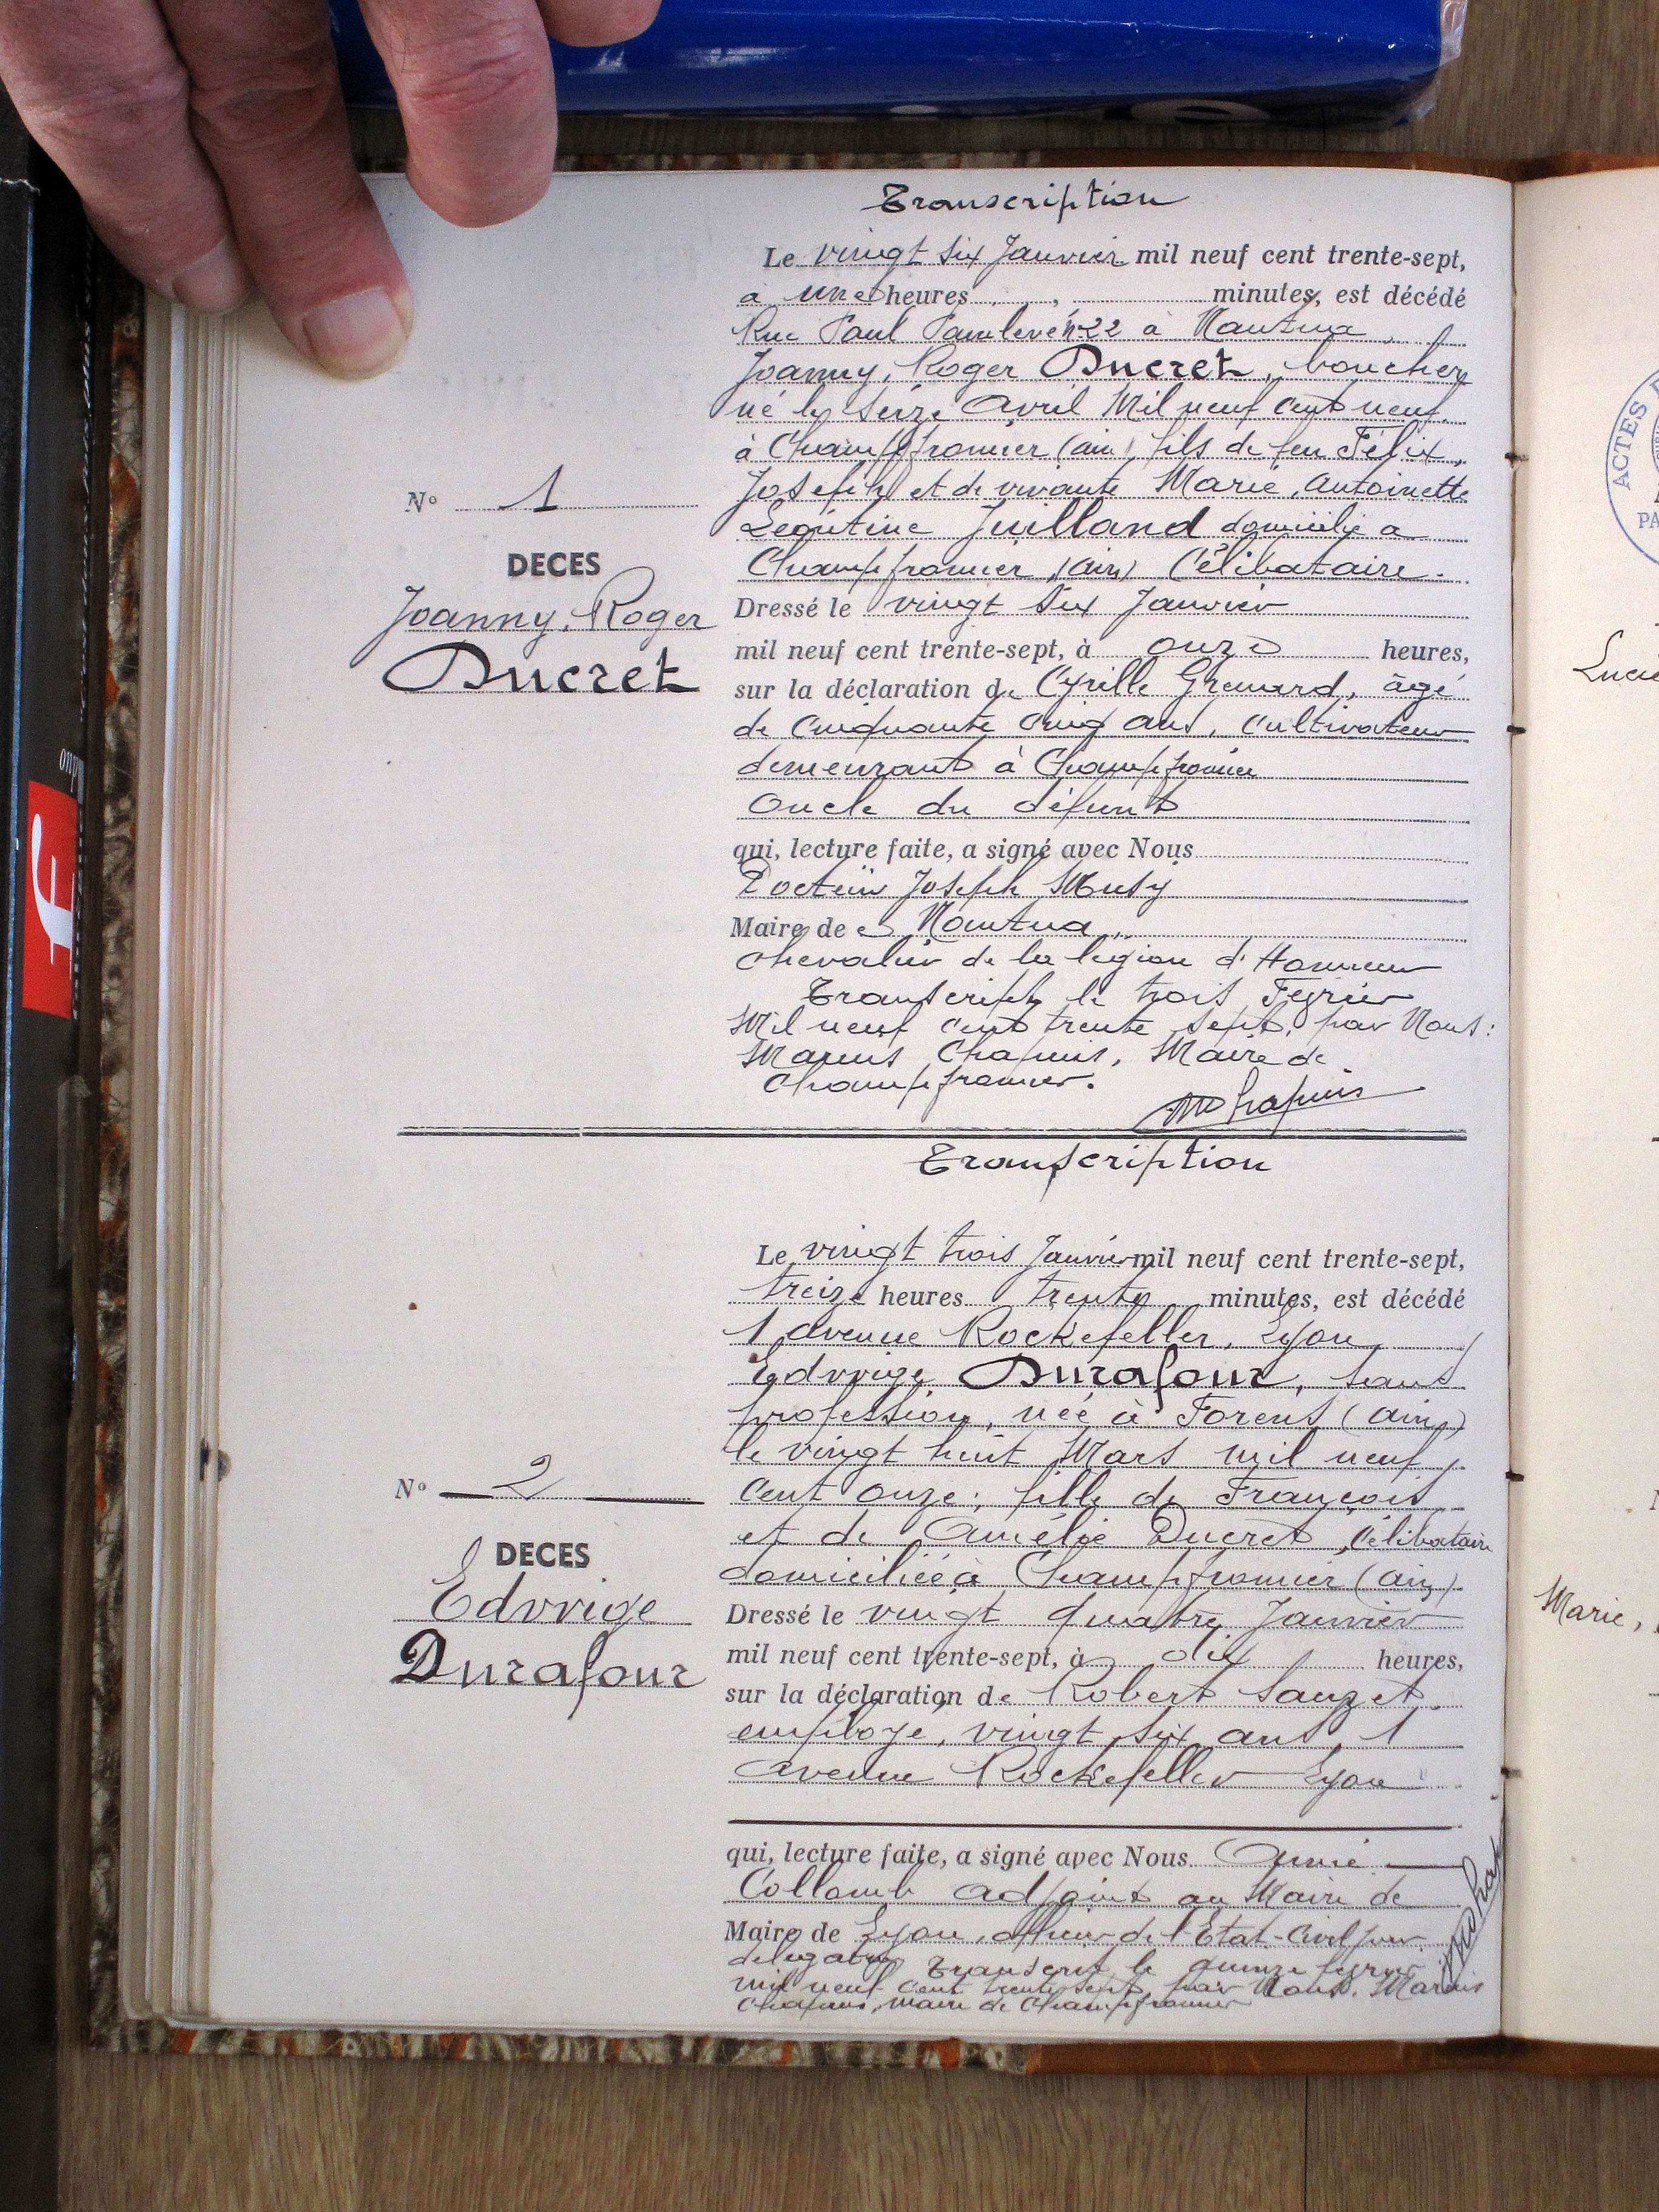 Transcription
Le vingt six Janvier mil neuf cent trente-sept,
à une heures , minutes, est décédé
Rue Paul Painlevé n° 22 à Nantua,
Joanny, Roger Ducret, boucher
né le Seize Avril Mil neuf Cent neuf.
à Champfromier (ain), fils de feu Félix,
Joseph et de vivante Marie, Antoinette
Juilland domicilié a
Champfromier, (ain) Célibataire.
N° 1
DECES
Joanny, Roger
Ducret
Dressé le vingt Six Janvier
mil neuf cent trente-sept, à onze heures,
sur la déclaration de Cyrille Grenard, âgé
de Cinquante Cinq ans, Cultivateur
demeurant à Champfromier
Oncle du défunt
qui, lecture faite, a signé avec Nous
Docteur Joseph Musy
Maire de Nantua,
chevalier de la légion d'Honneur
Transcript le trois Février
Mil neuf cent trente Sept, par Nous:
Marius Chapuis, Maire de
Champfromier.
MChapuis
Transcription
Le vingt trois Janvier mil neuf cent trente-sept,
treize heures trente minutes, est décédé
1 avenue Rockefeller, Lyon,
Edwige Durafour, sans
profession, née à Forens (ain)
le vingt huit Mars mil neuf
Cent onze; fille de François
et de Amélie Ducret, Célibataire
domiciliée à Champfromier (ain)
N° 2
DECES
Edwige
Durafour
Dressé le vingt quatre Janvier
mil neuf cent trente-sept, à dix heures,
sur la déclaration de Robert Sauzet
employé, vingt six ans, 1
avenue Rockefeller Lyon
qui, lecture faite, a signé avec Nous
Collomb adjoint au Maire de
Maire de Lyon, officier de l'Etat-Civil par
délégation Transcrit le quinze février
mil neuf cent trente sept, par Nous. Marius
Chapuis, maire de Champfromier
ACTES
PA
Marie,